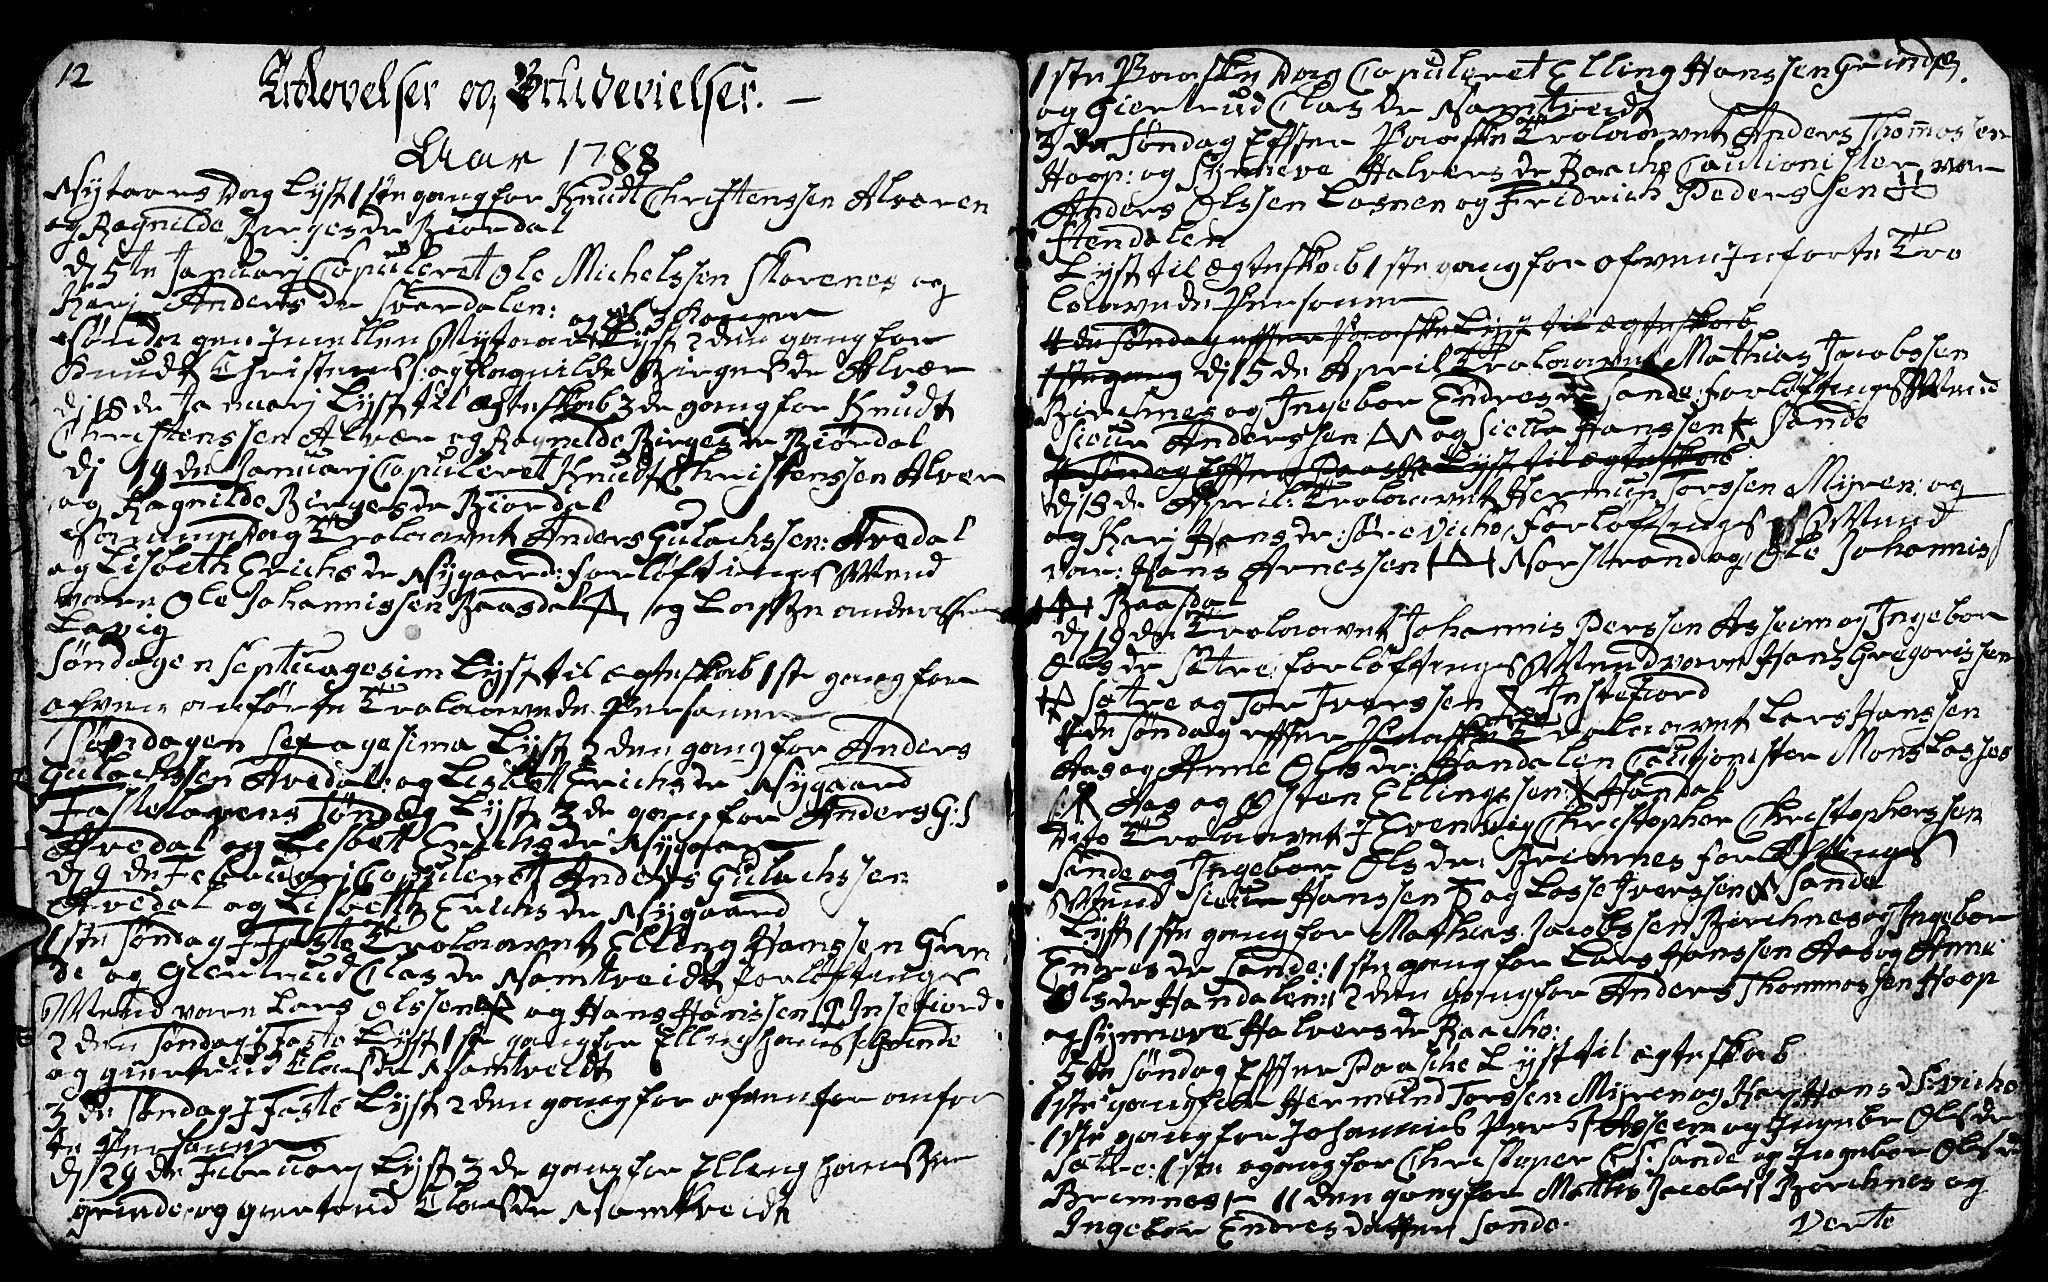 12
Trolovelser og Brudevielser. —
Aar 1788
Nytaars Dag Lyst 1ste gang for Knudt Christenssen Alveren
og Ragnilde Birgesdr Biørdal
dj 5te Januarj Copuleret Ole Michelssen Skorenes og
Karj Andersdr Svardalen:
Søndagen Jmellem Nytaar og H 3 Konger Lyst 2den gang for
Knudt Christens: og Ragnilde Birgesdr Alvær
dj 18de Januarj Lyst til ægteskab 3de gang for Knudt
Christenssen Alvær og Ragnilde Birgesdr Biørdal
dj 19de Januarj Copuleret Knudt Christenssen Alver
og Ragnilde Birgesdr Biørdal
Samme dag Trolaavet Anders Gulachssen: Avedal
og Lisbeth Erichsdr Nygaard: forløftings Mend
vare Ole Johannissen Baasdal og Lasse anderssen
Lavig
Søndagen Septuagesim Lyst til ægteskab 1ste gang for
ofven anførte Trolaavede Personer
Søndagen Sexagesima Lyst 2den gang for Anders
Gulachssen Avedal: og Lisbet Erichsdr Nygaard
Fastelavens Søndag Lyst 3de gang for Anders G: S
Avedal og Lisbett Erichsdr Nygaar
dj 9de Februarj Copuleret Anders Gulachssen
Avedal og Lisbetth Erichsdr Nygaard
1ste Søndag J Faste Trolaavet Elling Hanssen Grin
de og Giertrud Clasdr Namtveidt forløftings
Mend vare Lars Olssen og Hans Hanssen Insefiord
2den Søndag J Faste Lyst 1ste gang for Elling hans: Grinde
og giertrud Clasdr Namtveidt
3de Søndag J Faste Lyst 2den gang for ofvenfor anfør
te Personer
dj 29de Februarj Lyst 3de gang for Elling hanssen
grinde og giertrud Clasdr Namtveidt
1ste Paaske Dag Copuleret Elling Hanssen Grinde
og Giertrud Clasdr Namtveidt
3de Søndag Efter Paaske Trolaavet Anders Thommassen
Hoop: og Synneve Halversdr Raache Cautionister var
Anders Olssen Losnen og Fridrich Pederssen
Stendalen
Lyst til ægteskab 1ste gang for ofven Jnførte Tro
laavede Personer
4de Søndag efter Paaske Lyst til ægteskab
1ste gang dj 15de April Trolaavet Mathias Jacobssen
Birchnes og Ingebor Endresdr Sande: forløftings Mend
Siour Anderssen og Siour Hanssen Sande
4 Søndag Efter Paaske Lyst til ægteskab
dj 18de April: Trolaavet Hermun Torssen Myren: og
og Karj Hansdr: Sør-e Viche, forløftings Mend
var: Hans Arnessen Norstrand og Ole Johannis
Baasdal
dj 19de Trolaavet Johannis Perssen Asseim og Ingebor
Olsdr Sætre: forløftings Mend vare Hans Gregorissen
Sætre og Tor Iverssen Instefiord
4de Søndag efter Paaske Trolaavet Lars Hanssen
Aas og Anne Olsdr: Handalen Cautionister Mons Lasses
Aas og Østen Ellingssen Handal
Dito Trolaavet J Evenvig Christopher Christopherssen
Sande og Ingebor Olsdr: Brimnes forløftings
Mend Siour Hanssen og Lasse Iverssen Sande
Lyst 1ste gang for Mathias Jacobssen Birchnes og Ingebor
Endresdr Sande: 1ste gang for Lars Hanssen Aas og Anne
Olsdr Handalen: 2den gang for Anders Thommassen Hoop
og Synneve Halversdr Raache:
5te Søndag Efter Paasche Lyst til ægteskab
1ste gang for Hermund Torssen Myren og Karj Hansd S: Viche
1ste gang for Johannis Pers: Asseim og Ingebor Olsdr
Sætre: 1ste gang for Christopher Chs: Sande og Ingebor Olsdr
Brimnes — 11den gang for Mathis Jacobs: Birchnes og
Ingebor Endresdatter Sande.
Verte